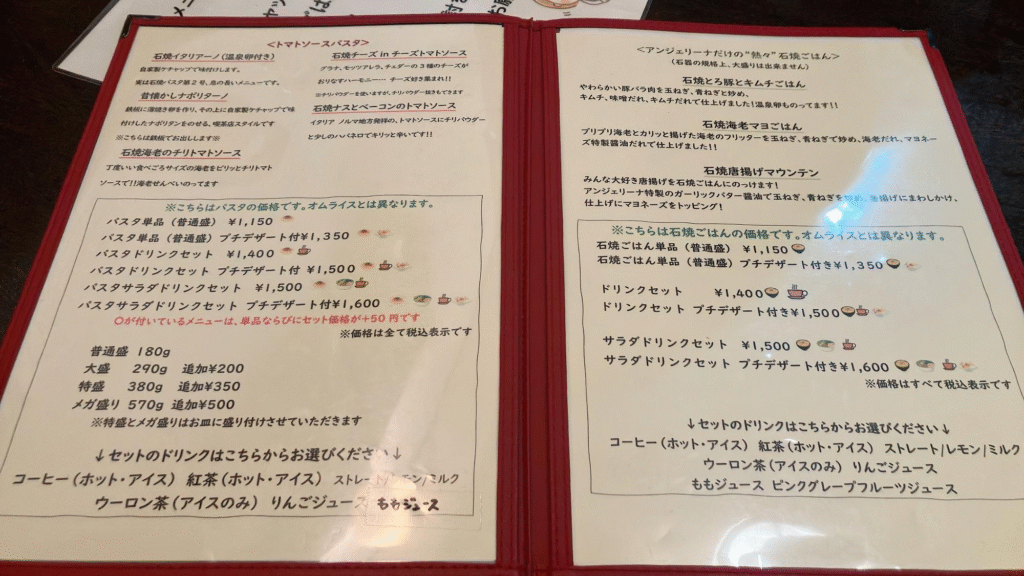 <トマトソースパスタ>
石焼イタリアーノ(温泉卵付き)
自家製ケチャップで味付けします。
実は石焼パスタ第2号、息の長いメニューです。
昔懐かしナポリターノ
鉄板に薄焼き卵を作り、その上に自家製ケチャップで味
付けしたナポリタンをのせる、喫茶店スタイルです
※こちらは鉄板でお出しします※
石焼海老のチリトマトソース
丁度いい食べごろサイズの海老をピリッとチリトマト
ソースで!!海老せんべいのってます
石焼チーズ in チーズトマトソース
グラナ、モッツアレラ、チェダーの3種のチーズが
おりなすハーモニー… チーズ好き集まれ!!
※チリパウダーを使いますが、チリパウダー抜きもできます
石焼ナスとベーコンのトマトソース
イタリア ノルマ地方発祥の、トマトソースにチリパウダー
と少しのハバネロでキリッと辛いです!!
※こちらはパスタの価格です。オムライスとは異なります。
パスタ単品(普通盛) ¥1,150
パスタ単品(普通盛) プチデザート付¥1,350
パスタドリンクセット ¥1,400
パスタドリンクセット プチデザート付 ¥1,500
パスタサラダドリンクセット ¥1,500
パスタサラダドリンクセット プチデザート付¥1,600
〇が付いているメニューは、単品ならびにセット価格が+50円です
※価格は全て税込表示です
普通盛 180g
大盛 290g 追加¥200
特盛 380g 追加¥350
メガ盛り 570g 追加¥500
※特盛とメガ盛りはお皿に盛り付けさせていただきます
↓セットのドリンクはこちらからお選びください↓
コーヒー(ホット・アイス) 紅茶(ホット・アイス) ストレート/レモン/ミルク
ウーロン茶(アイスのみ) りんごジュース ももジュース
<アンジェリーナだけの"熱々"石焼ごはん>
(石器の規格上、大盛りは出来ません)
石焼とろ豚とキムチごはん
やわらかい豚バラ肉を玉ねぎ、青ねぎと炒め、
キムチ、味噌だれ、キムチだれで仕上げました!温泉卵ものってます!!
石焼海老マヨごはん
プリプリ海老とカリッと揚げた海老のフリッターを玉ねぎ、青ねぎで炒め、海老だれ、マヨネー
ズ特製醤油だれで仕上げました!!
石焼唐揚げマウンテン
みんな大好き唐揚げを石焼ごはんにのっけます!
アンジェリーナ特製のガーリックバター醤油で玉ねぎ、青ねぎを炒め、唐揚げにまわしかけ、
仕上げにマヨネーズをトッピング!
※こちらは石焼ごはんの価格です。オムライスとは異なります。
石焼ごはん単品(普通盛) ¥1,150
石焼ごはん単品(普通盛) プチデザート付き¥1,350
ドリンクセット ¥1,400
ドリンクセット プチデザート付き¥1,500
サラダドリンクセット ¥1,500
サラダドリンクセット プチデザート付き¥1,600
※価格はすべて税込表示です
↓セットのドリンクはこちらからお選びください↓
コーヒー(ホット・アイス) 紅茶(ホット・アイス) ストレート/レモン/ミルク
ウーロン茶(アイスのみ) りんごジュース
ももジュース ピンクグレープフルーツジュース